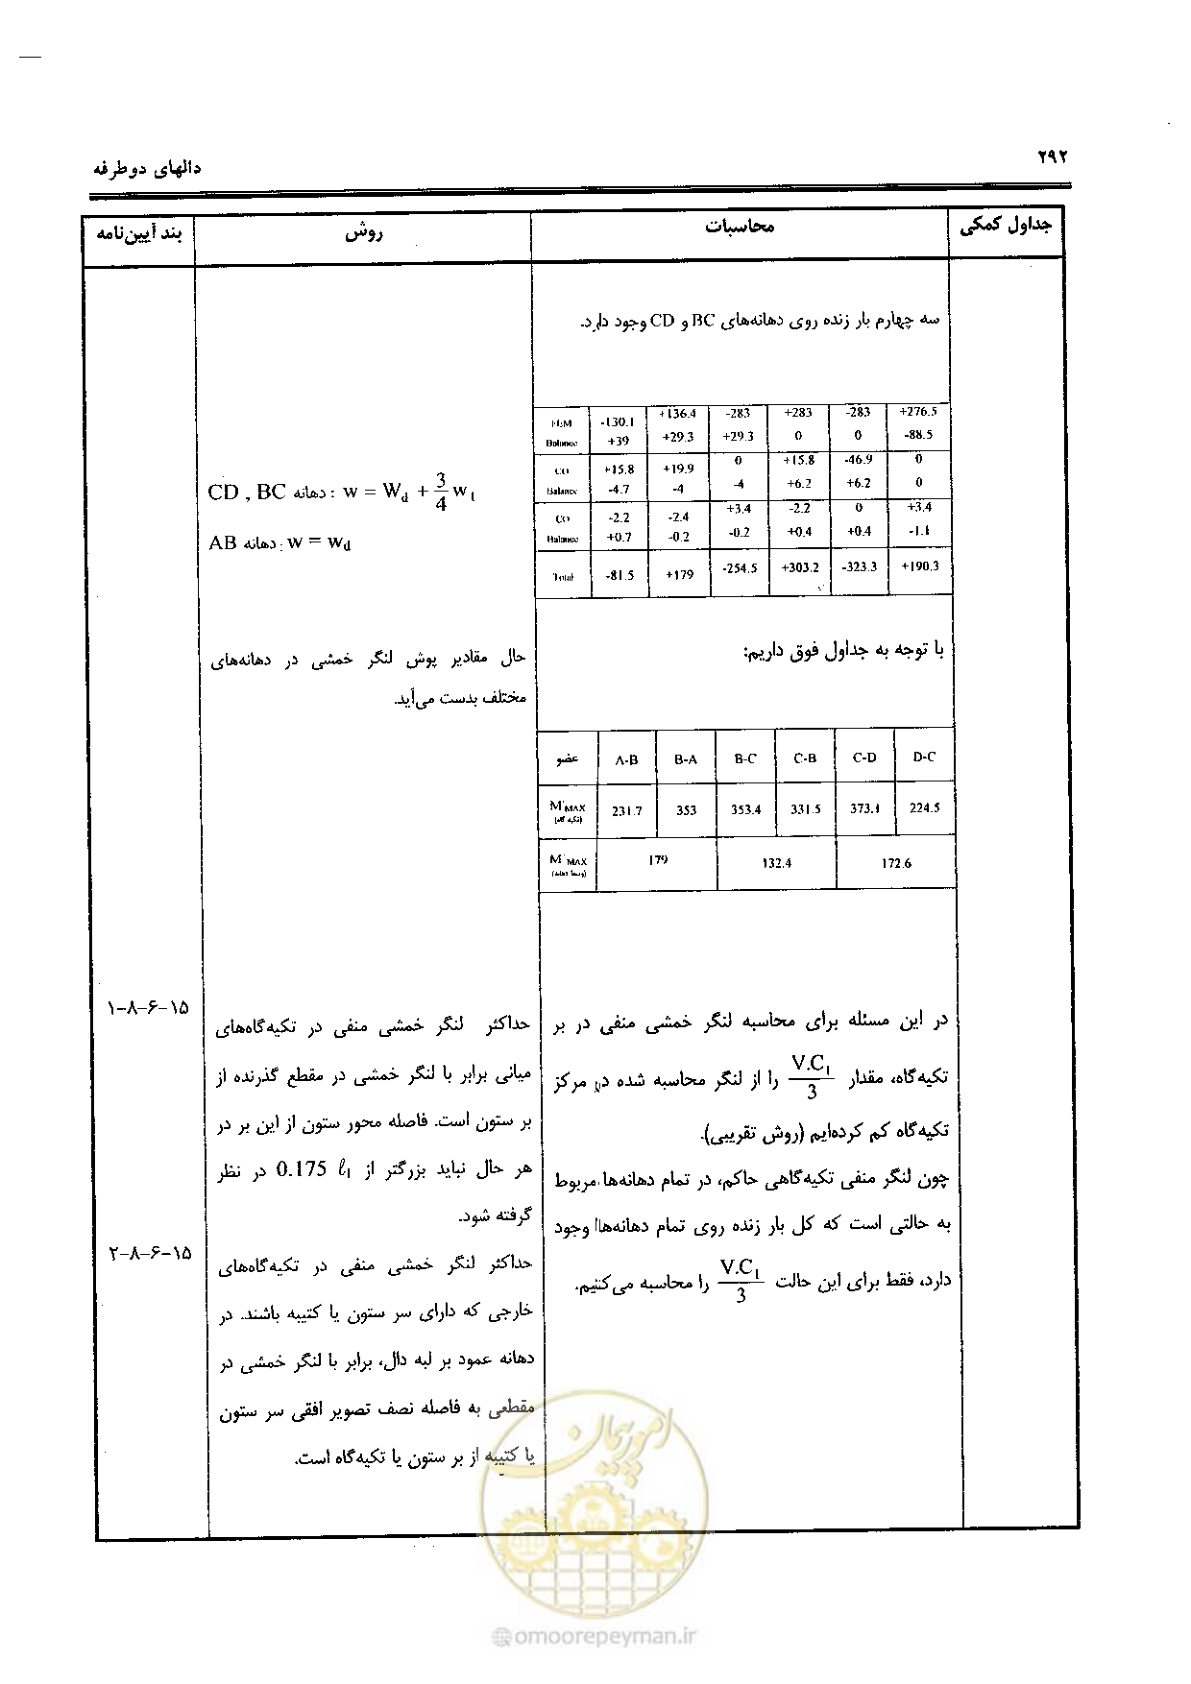 ۲۹۲
دالهای دوطرفه
جداول کمکی
محاسبات
روش
بند آیین‌نامه
سه چهارم بار زنده روی دهانه‌های BC و CD وجود دارد.
FEM -130.1 +136.4 -283 +283 -283 +276.5
Balance +39 +29.3 +29.3 0 0 -88.5
CO +15.8 +19.9 0 +15.8 -46.9 0
Balance -4.7 -4 -4 +6.2 +6.2 0
CO -2.2 -2.4 +3.4 -2.2 0 +3.4
Balance +0.7 -0.2 -0.2 +0.4 +0.4 -1.1
Total -81.5 +179 -254.5 +303.2 -323.3 +190.3
با توجه به جداول فوق داریم:
عضو A-B B-A B-C C-B C-D D-C
M⁻MAX (تکیه گاه) 231.7 353 353.4 331.5 373.1 224.5
M⁺MAX (وسط دهانه) 179 132.4 172.6
در این مسئله برای محاسبه لنگر خمشی منفی در بر
تکیه‌گاه، مقدار V.C₁/3 را از لنگر محاسبه شده در مرکز
تکیه‌گاه کم کرده‌ایم (روش تقریبی).
چون لنگر منفی تکیه‌گاهی حاکم، در تمام دهانه‌ها مربوط
به حالتی است که کل بار زنده روی تمام دهانه‌ها وجود
دارد، فقط برای این حالت V.C₁/3 را محاسبه می‌کنیم.
CD , BC دهانه : w = W_d + 3/4 w_l
AB دهانه : w = w_d
حال مقادیر پوش لنگر خمشی در دهانه‌های
مختلف بدست می‌آید.
حداکثر لنگر خمشی منفی در تکیه‌گاه‌های
میانی برابر با لنگر خمشی در مقطع گذرنده از
بر ستون است. فاصله محور ستون از این بر در
هر حال نباید بزرگتر از 0.175 ℓ₁ در نظر
گرفته شود.
حداکثر لنگر خمشی منفی در تکیه‌گاه‌های
خارجی که دارای سر ستون یا کتیبه باشند. در
دهانه عمود بر لبه دال، برابر با لنگر خمشی در
مقطعی به فاصله نصف تصویر افقی سر ستون
یا کتیبه از بر ستون یا تکیه‌گاه است.
۱۵-۶-۸-۱
۱۵-۶-۸-۲
امور پیمان
@omoorepeyman.ir